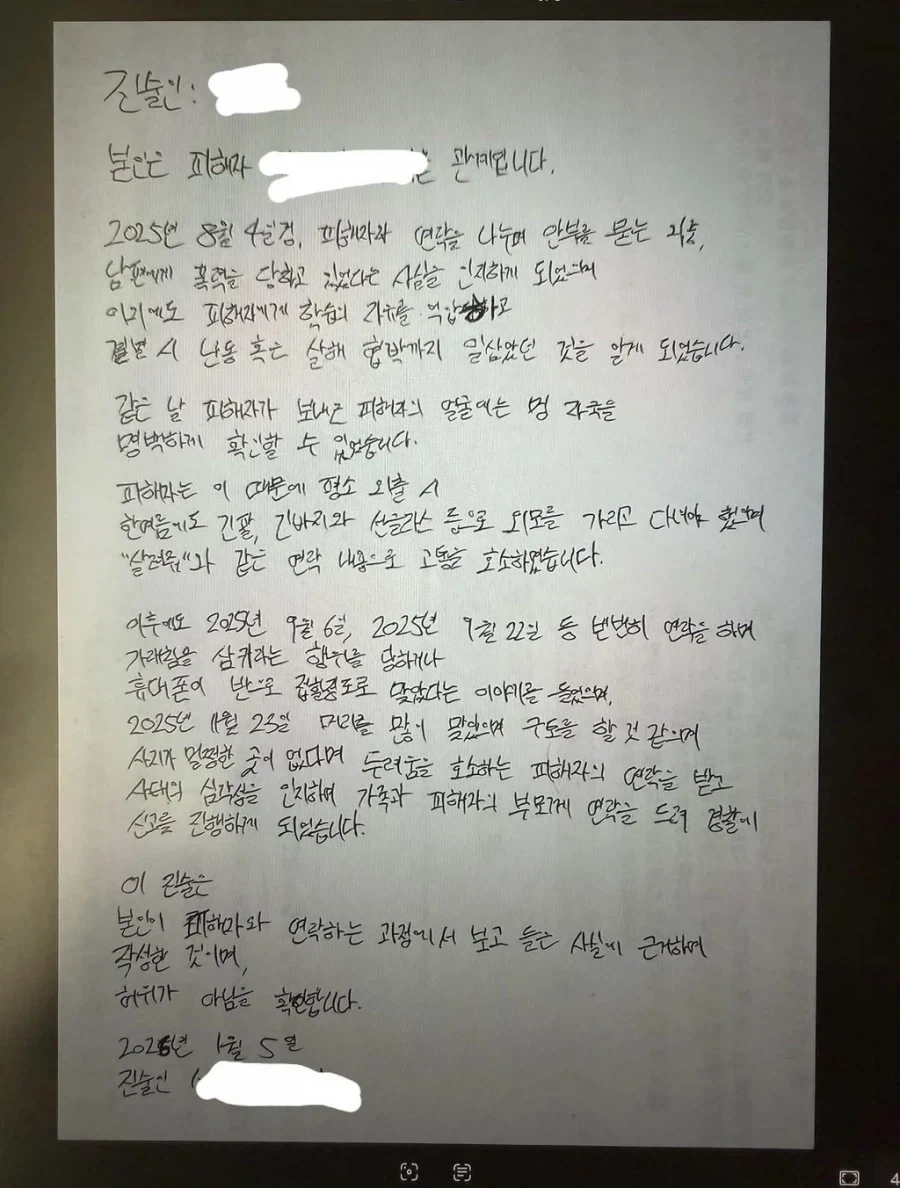 진술인:
본인은 피해자 는 관계입니다.
2025년 8월 4일경, 피해자와 연락을 나누며 안부를 묻는 와중,
남편에게 폭력을 당하고 있었다는 사실을 인지하게 되었으며
이외에도 피해자에게 학습의 자유를 억압하고
결별 시 난동 혹은 살해 협박까지 일삼았던 것을 알게 되었습니다.
같은 날 피해자가 보내온 피해자의 얼굴에는 멍 자국을
명백하게 확인할 수 있었습니다.
피해자는 이 때문에 평소 외출 시
한여름에도 긴팔, 긴바지와 선글라스 등으로 외모를 가리고 다녀야 했으며
"살려줘"와 같은 연락 내용으로 고통을 호소하였습니다.
이후에도 2025년 9월 6일, 2025년 9월 22일 등 빈번히 연락을 하며
가래침을 삼키라는 행위를 당하거나
휴대폰이 반으로 접힐정도로 맞았다는 이야기를 들었으며,
2025년 11월 23일 머리를 많이 맞았으며 구토를 할 것 같으며
사지가 멀쩡한 곳이 없다며 두려움을 호소하는 피해자의 연락을 받고
사태의 심각성을 인지하며 가족과 피해자의 부모께 연락을 드려 경찰에
신고를 진행하게 되었습니다.
이 진술은
본인이 피해자와 연락하는 과정에서 보고 들은 사실에 근거하여
작성한 것이며,
허위가 아님을 확인합니다.
2026년 1월 5일
진술인
4